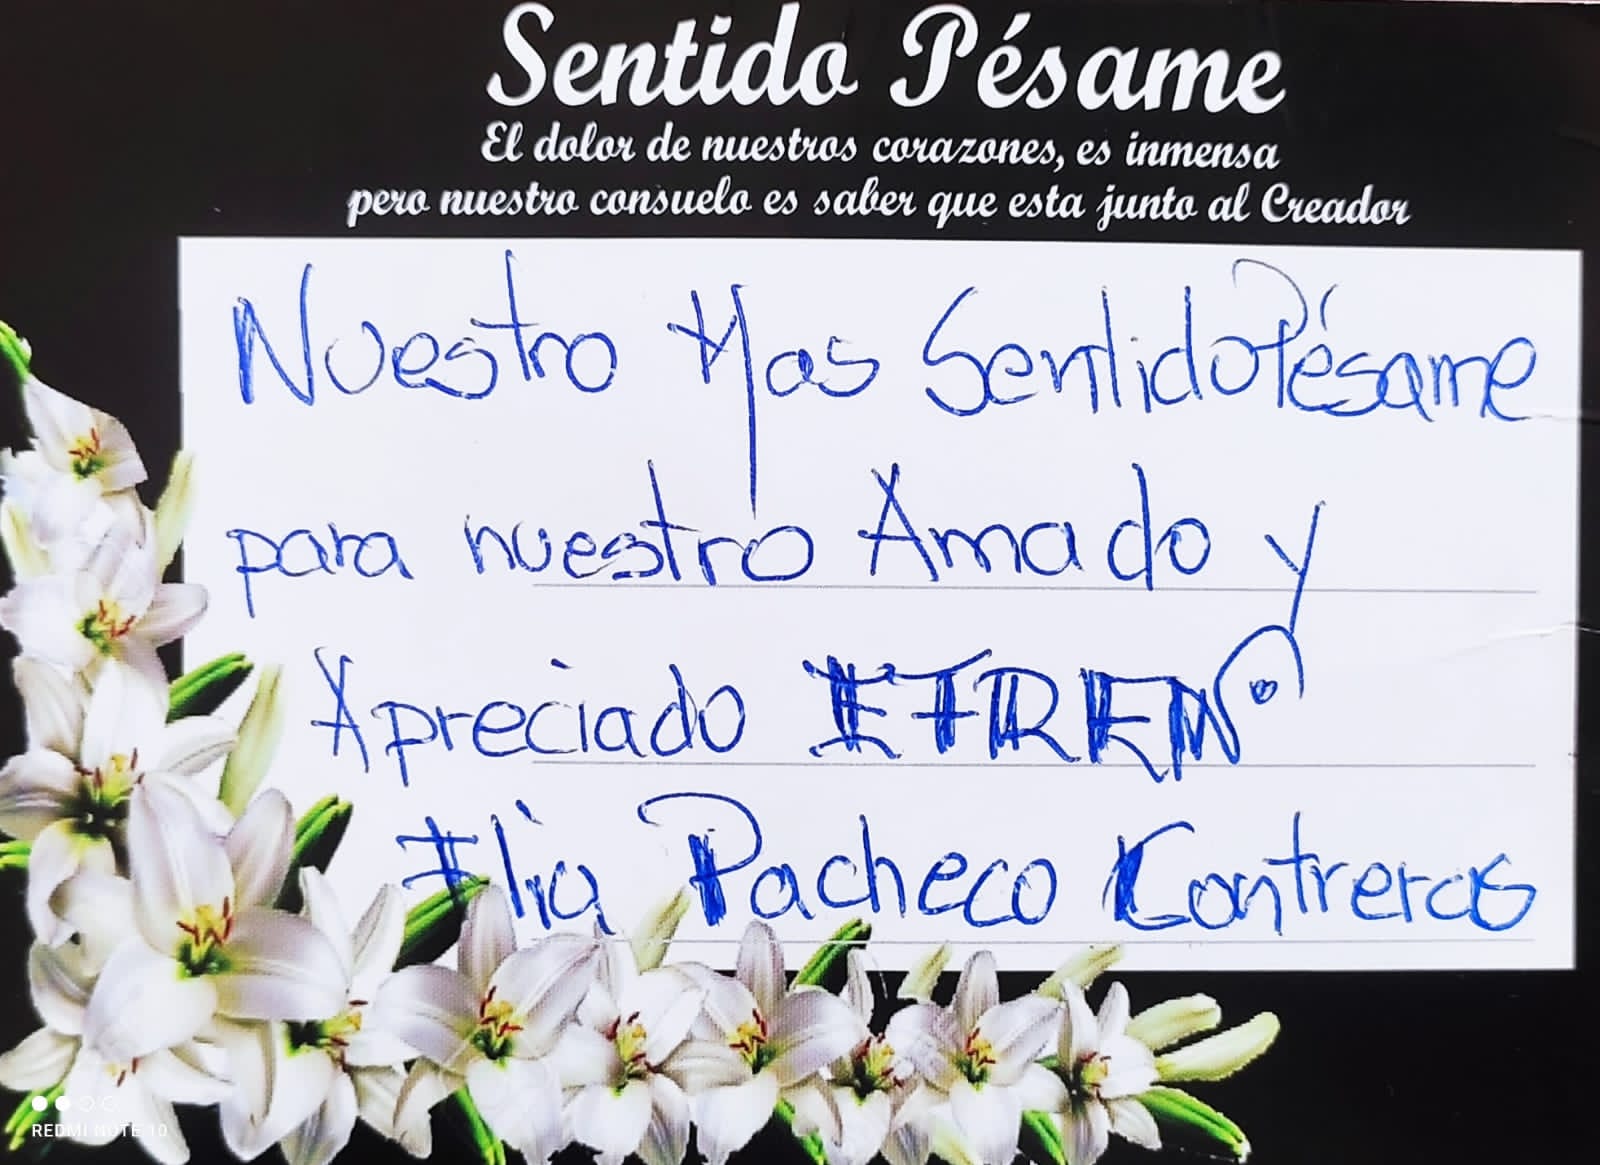 Sentido Pésame
El dolor de nuestros corazones, es inmensa
pero nuestro consuelo es saber que esta junto al Creador
Nuestro Mas Sentido Pésame
para nuestro Amado y
Apreciado EFREN
Elia Pacheco Contreras
REDMI NOTE 10